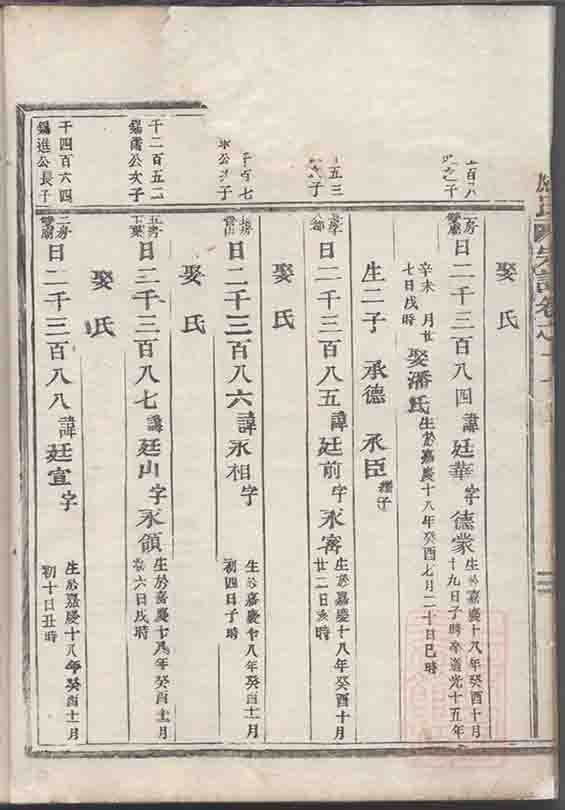 娶氏
二房
日二千三百八四諱廷華字德蒙生於嘉慶十八年癸酉十月
十九日子時卒道光十五年
辛未 月廿
七日戌時
娶潘氏生於嘉慶十八年癸酉七月二十日巳時
生二子 承德 承臣繼子
五三
子
日二千三百八五諱廷前字永富生於嘉慶十八年癸酉十月
廿二日亥時
娶氏
千百七
公次子
長房
日二千三百八六諱永相字 生於嘉慶十八年癸酉十一月
初四日子時
娶氏
千二百五二
公次子
五房
下葉
日二千三百八七諱廷山字永領生於嘉慶十八年癸酉十一月
六日戌時
娶氏
千四百六四
錫進公長子
二房
日二千三百八八諱廷宣字 生於嘉慶十八年癸酉十一月
初十日丑時